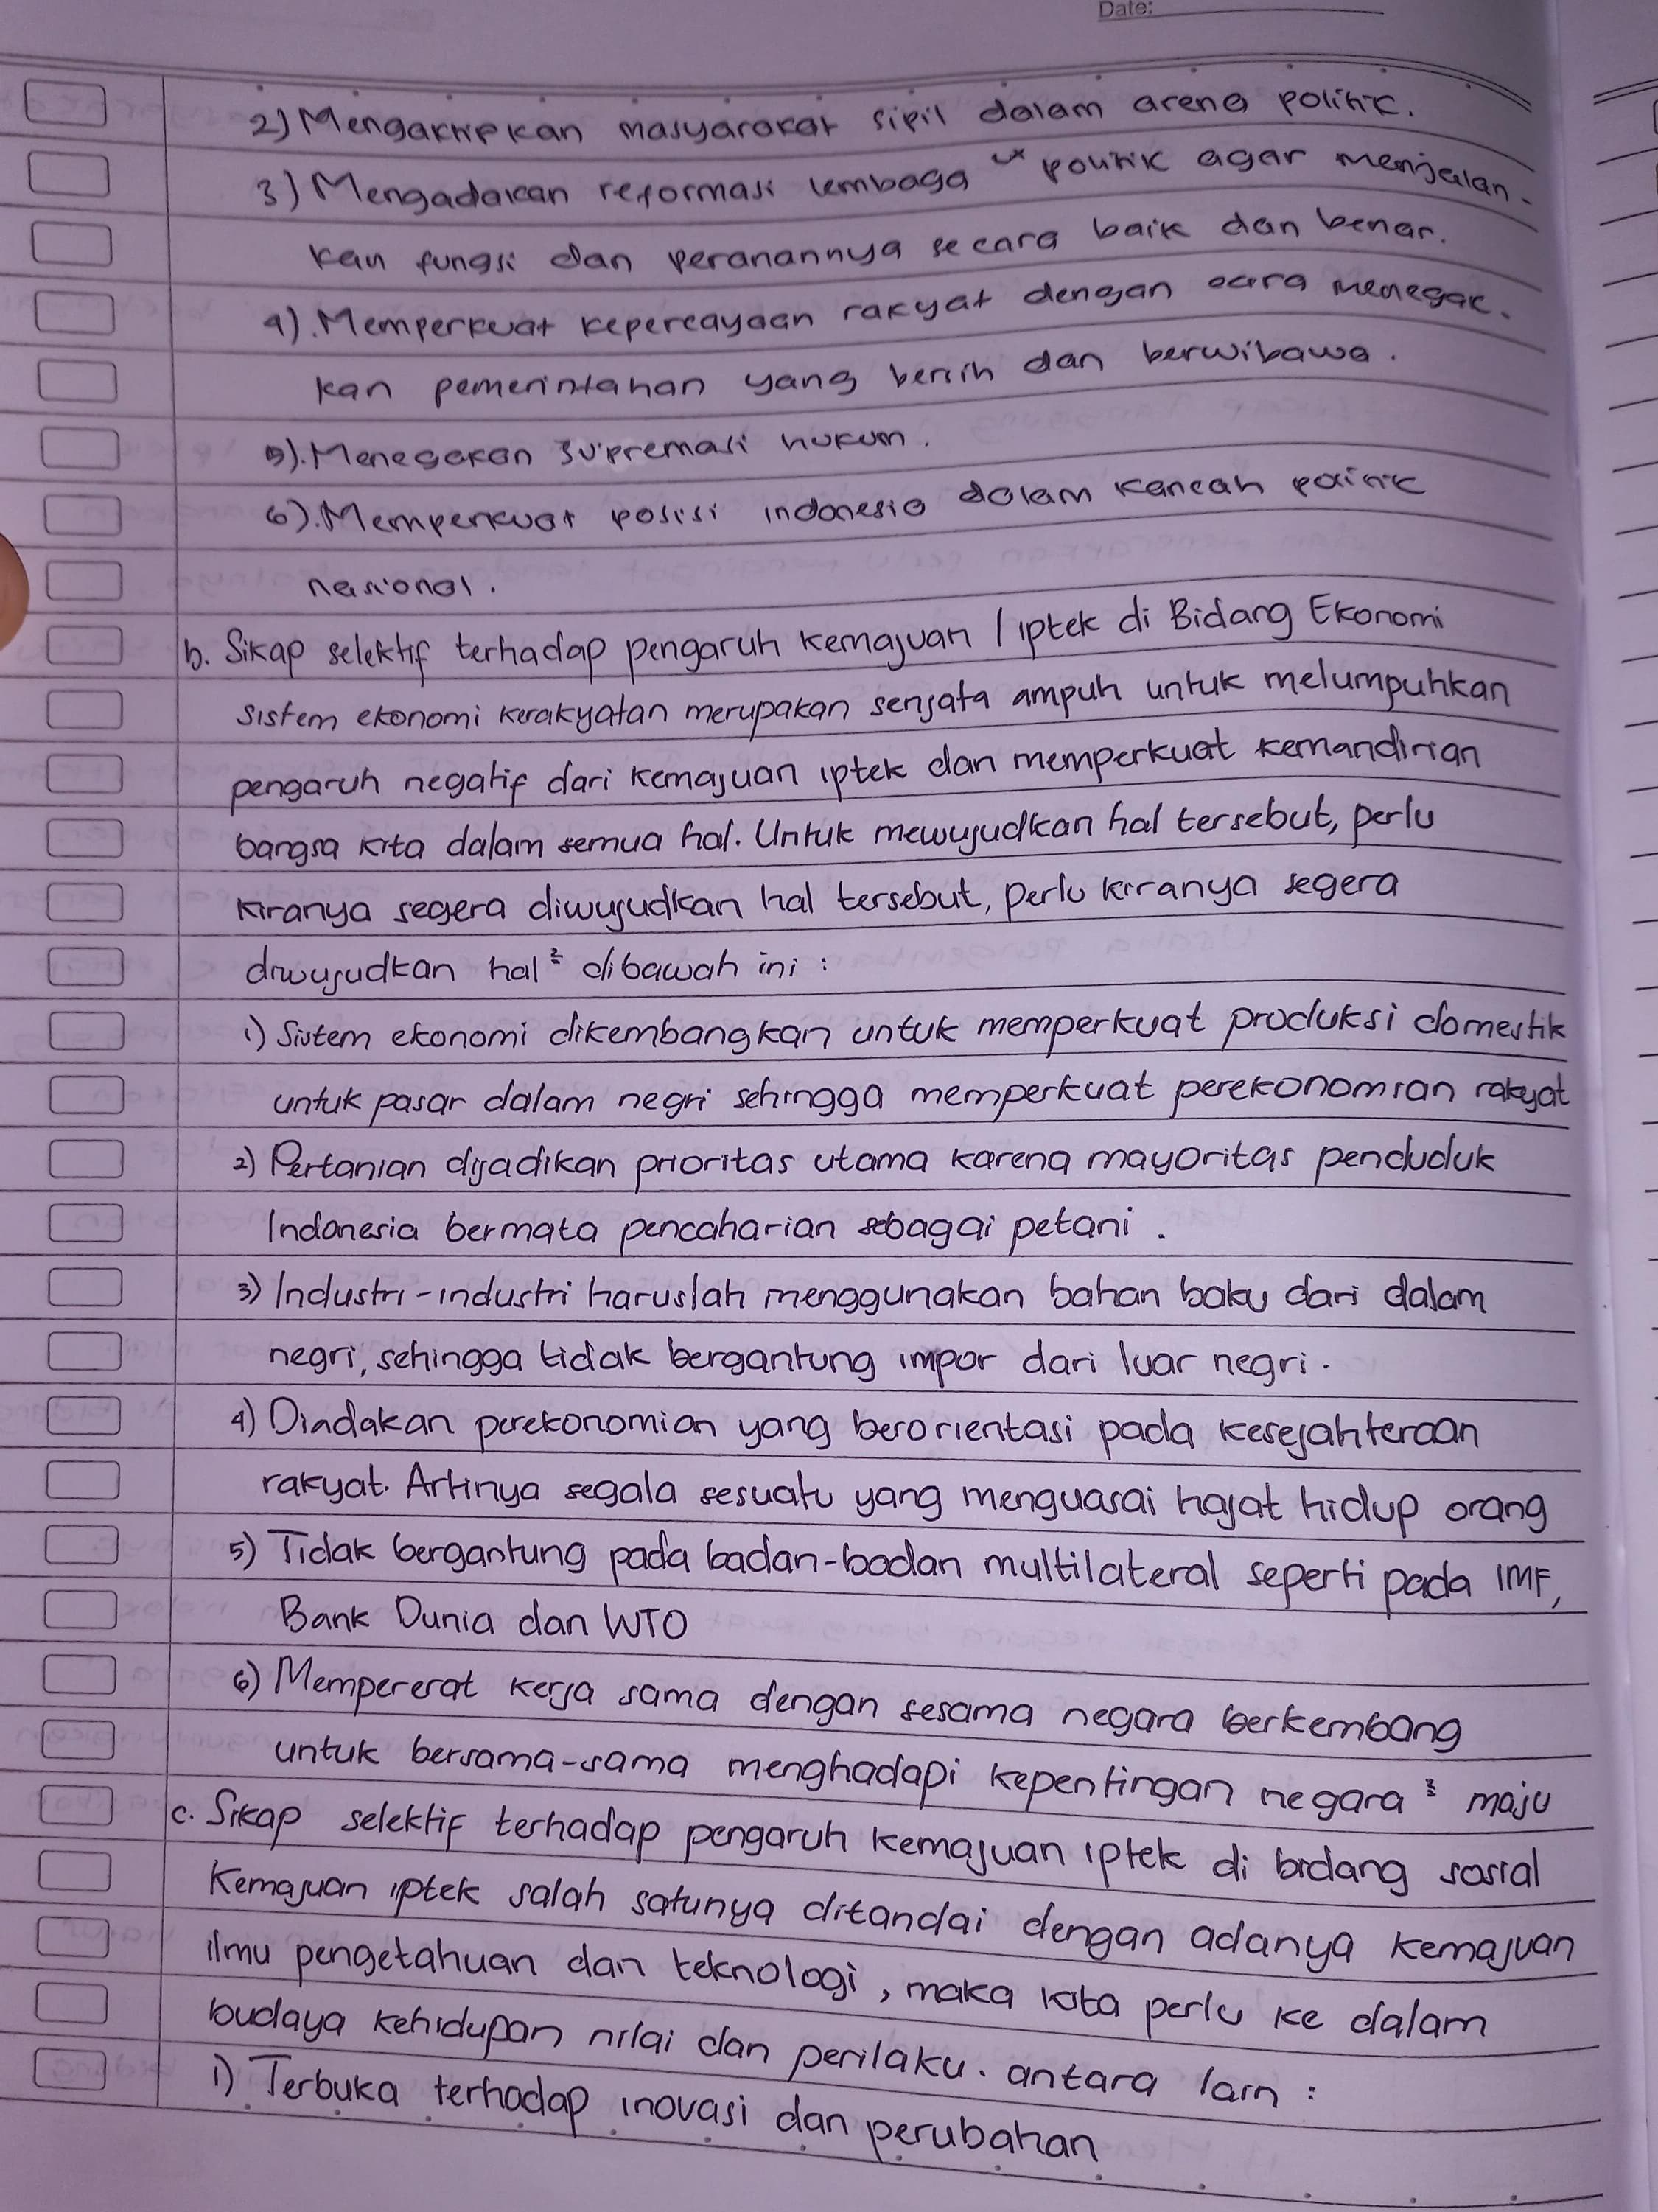 Date:
2) Mengaktifkan masyarakat sipil dalam arena politik.
3) Mengadakan reformasi lembaga politik agar menjalan-
kan fungsi dan peranannya secara baik dan benar.
4). Memperkuat kepercayaan rakyat dengan cara menegak.
kan pemerintahan yang bersih dan berwibawa.
5). Menegakan supremasi hukum.
6). Memperkuat posisi indonesia dalam kancah politik
nasional.
b. Sikap selektif terhadap pengaruh kemajuan / iptek di Bidang Ekonomi
sistem ekonomi kerakyatan merupakan senjata ampuh untuk melumpuhkan
pengaruh negatif dari kemajuan iptek dan memperkuat kemandirian
bangsa kita dalam semua hal. Untuk mewujudkan hal tersebut, perlu
kiranya segera diwujudkan hal tersebut, perlu kiranya segera
diwujudkan hal² dibawah ini :
1) Sistem ekonomi dikembangkan untuk memperkuat produksi domestik
untuk pasar dalam negri sehingga memperkuat perekonomian rakyat
2) Pertanian dijadikan prioritas utama karena mayoritas penduduk
Indonesia bermata pencaharian sebagai petani.
3) Industri-industri haruslah menggunakan bahan baku dari dalam
negri, sehingga tidak bergantung impor dari luar negri.
4) Diadakan perekonomian yang berorientasi pada kesejahteraan
rakyat. Artinya segala sesuatu yang menguasai hajat hidup orang
5) Tidak bergantung pada badan-badan multilateral seperti pada IMF,
Bank Dunia dan WTO
6) Mempererat kerja sama dengan sesama negara berkembang
untuk bersama-sama menghadapi kepentingan negara² maju
c. Sikap selektif terhadap pengaruh kemajuan iptek di bidang sosial
Kemajuan iptek salah satunya ditandai dengan adanya kemajuan
ilmu pengetahuan dan teknologi, maka kita perlu ke dalam
budaya kehidupan nilai dan perilaku. antara lain :
1) Terbuka terhadap inovasi dan perubahan